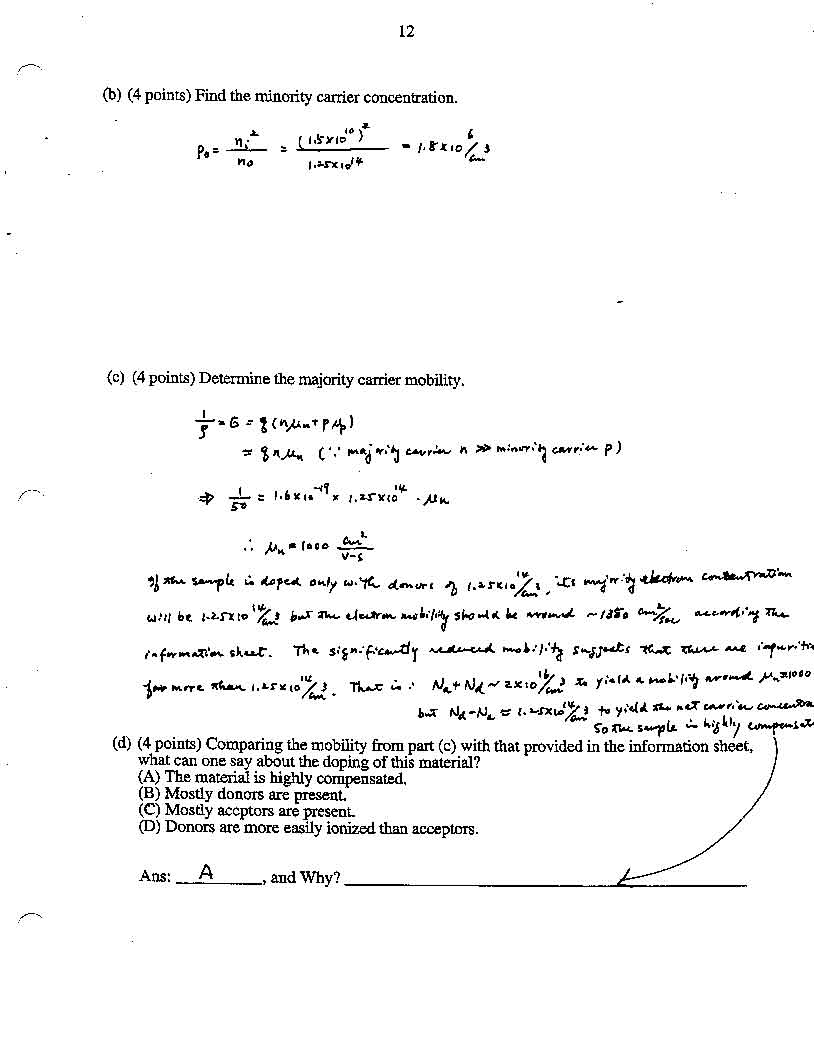 12
(b) (4 points) Find the minority carrier concentration.
P₀ = nᵢ² / n₀ = (1.5×10¹⁰)² / 1.25×10¹⁴ = 1.8×10⁶/cm³
(c) (4 points) Determine the majority carrier mobility.
1/ρ = σ = q(nμₙ + pμₚ)
= qnμₙ (∵ majority carrier n >> minority carrier p)
⇒ 1/50 = 1.6×10⁻¹⁹ × 1.25×10¹⁴ · μₙ
∴ μₙ = 1000 cm²/V-s
If the sample is doped only with donors of 1.25×10¹⁴/cm³, its majority electron concentration
will be 1.25×10¹⁴/cm³ but the electron mobility should be around ~1350 cm²/sec according the
information sheet. The significantly reduced mobility suggests that there are impurities
far more than 1.25×10¹⁴/cm³. That is: Na+Nd ~ 2×10¹⁶/cm³ to yield a mobility around μₙ≈1000
but Nd-Na ≈ 1.25×10¹⁴/cm³ to yield the net carrier concentra
So the sample is highly compensat
(d) (4 points) Comparing the mobility from part (c) with that provided in the information sheet,
what can one say about the doping of this material?
(A) The material is highly compensated.
(B) Mostly donors are present.
(C) Mostly accptors are present.
(D) Donors are more easily ionized than acceptors.
Ans: A, and Why?